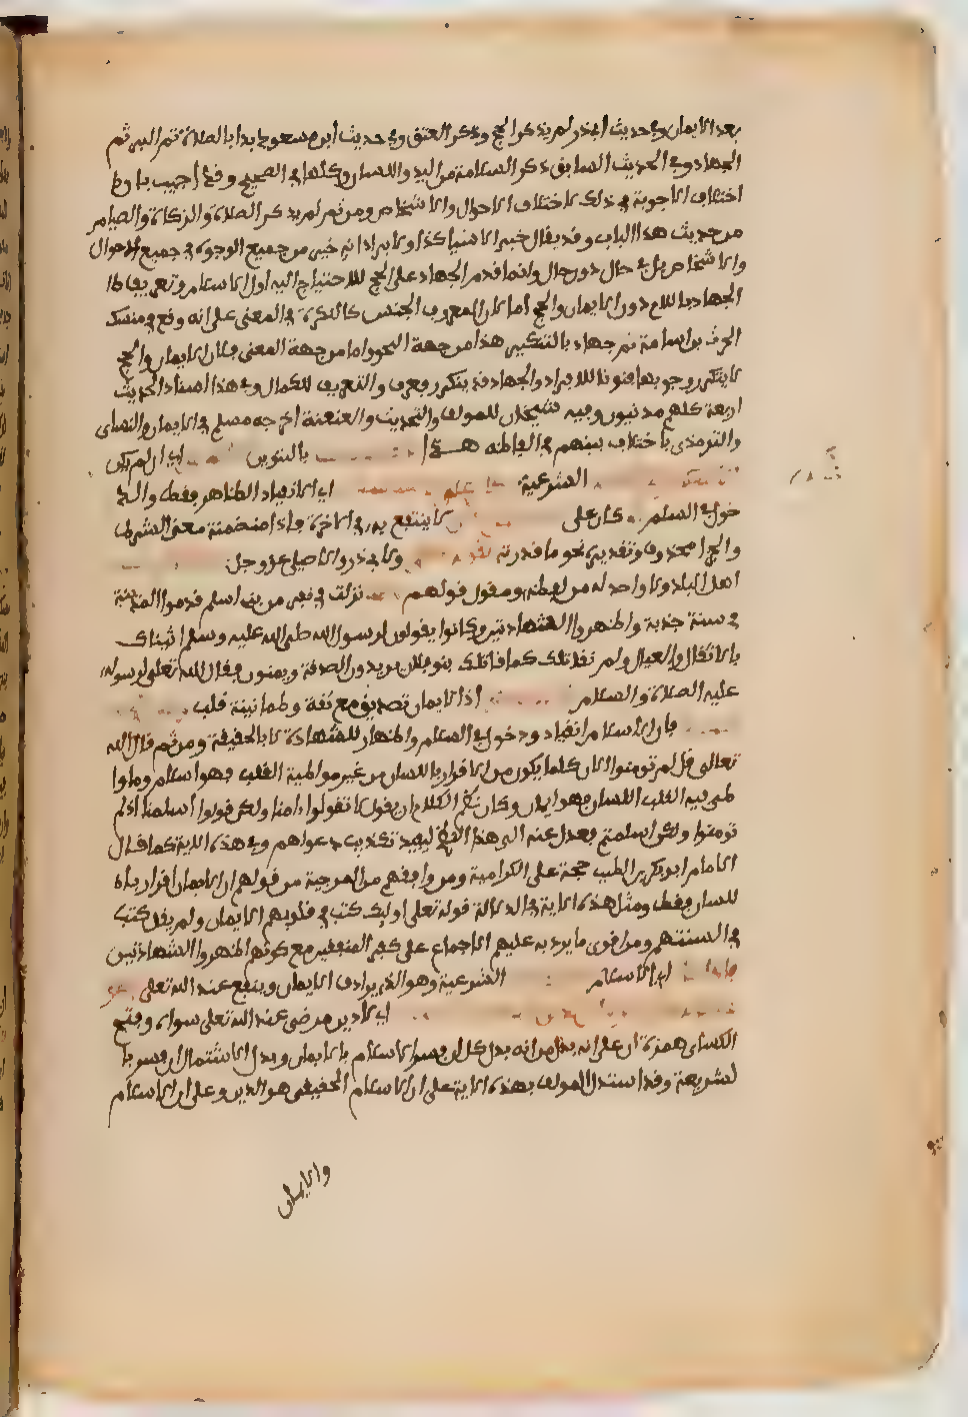 بعد الايمان وفي حديث ابي ذر لم يذكر الحج وذكر العتق وفي حديث ابن مسعود بدا بالصلاة ثم البر ثم
الجهاد وفي الحديث السابق ذكر السلامة من اليد واللسان وكلها في الصحيح وقد اجيب بان
اختلاف الاجوبة في ذلك لاختلاف الاحوال والاشخاص ومن ثم لم يذكر الصلاة والزكاة والصيام
من حديث هذا الباب وقد يقال خير الاشياء كذا ولا يراد انه خير من جميع الوجوه في جميع الاحوال
والاشخاص بل في حال دون حال وانما قدم الجهاد على الحج للاحتياج اليه اول الاسلام وتعريف
الجهاد باللام دون الايمان والحج اما لان المعرف بالجنس كالنكرة في المعنى على انه وقع في مسند
الحرث بن اسامة ثم جهاد بالتنكير هذا من جهة النحو واما من جهة المعنى فلان الايمان والحج
لا يتكرر وجوبهما فنونا للافراد والجهاد قد يتكرر فعرف والتعريف للكمال وفي هذا اسناد الحديث
اربعة كلهم مدنيون وفيه شيخان للمولف والتحديث والعنعنة اخرجه مسلم في الايمان والنساى
والترمذي باختلاف بينهم في الفاظه هــذا بالتنوين اي ان لم يكن
الشرعية اي الانقياد الظاهر فقط والد
خول في السلم كان على لا ينتفع به في الاخرة فاذا متضمنة معنى الشرط
والجزا محذوف وتقديره نحو ما قدرته ولابي ذر والاصيلي عز وجل
اهل البلد ولا واحد له من لفظه ومقول قولهم نزلت في نفر من بني اسلم قدموا المدينة
في سنة جذبة واظهروا الشهادتين وكانوا يقولون لرسول الله صلى الله عليه وسلم اتيناك
بالاثقال والعيال ولم نقاتلك كما قاتلك بنو فلان يريدون الصدقة ويمنون فقال الله تعلى لرسوله
عليه الصلاة والسلام اذ الايمان تصديق مع ثقة وطمانينة قلب
فان الاسلام انقياد ودخول في السلم واظهار للشهادة لا بالحقيقة ومن ثم قال الله
تعالى قل لم تومنوا لان كلما يكون من الاقرار باللسان من غير مواطية القلب فهو اسلام وما وا
طى فيه القلب اللسان فهو ايمان وكان نظم الكلام ان يقول لا تقولوا ءامنا ولكن قولوا اسلمنا اذ لم
تومنوا ولكن اسلمتم فعدل عنه الى هذا النظم ليفيد تكذيب دعواهم وفي هذه الاية كما قــال
الامام ابو بكر بن الطيب حجة على الكرامية ومن وافقهم من المرجية من قولهم ان الايمان اقرار با
للسان فقط ومثل هذه الاية في الدلالة قوله تعلى اوليك كتب في قلوبهم الايمان ولم يقل كتب
في السنتهم ومن اقوى ما يرد به عليهم الاجماع على كفر المنفقين مع كونهم اظهروا الشهادتين
اي الاسلام الشرعية وهو الذي يرادف الايمان وينفع عند الله تعلى
اي لا دين مرضي عند الله تعلى سواه وفتح
الكساى همزة ان على انه بدل من انه بدل كل ان فسر الاسلام بالايمان وبدل الاشتمال ان فسر با
لشريعة وقد استدل المولف بهذه الاية على ان الاسلام الحقيقي هو الدين وعلى ان الاسلام
والايمان